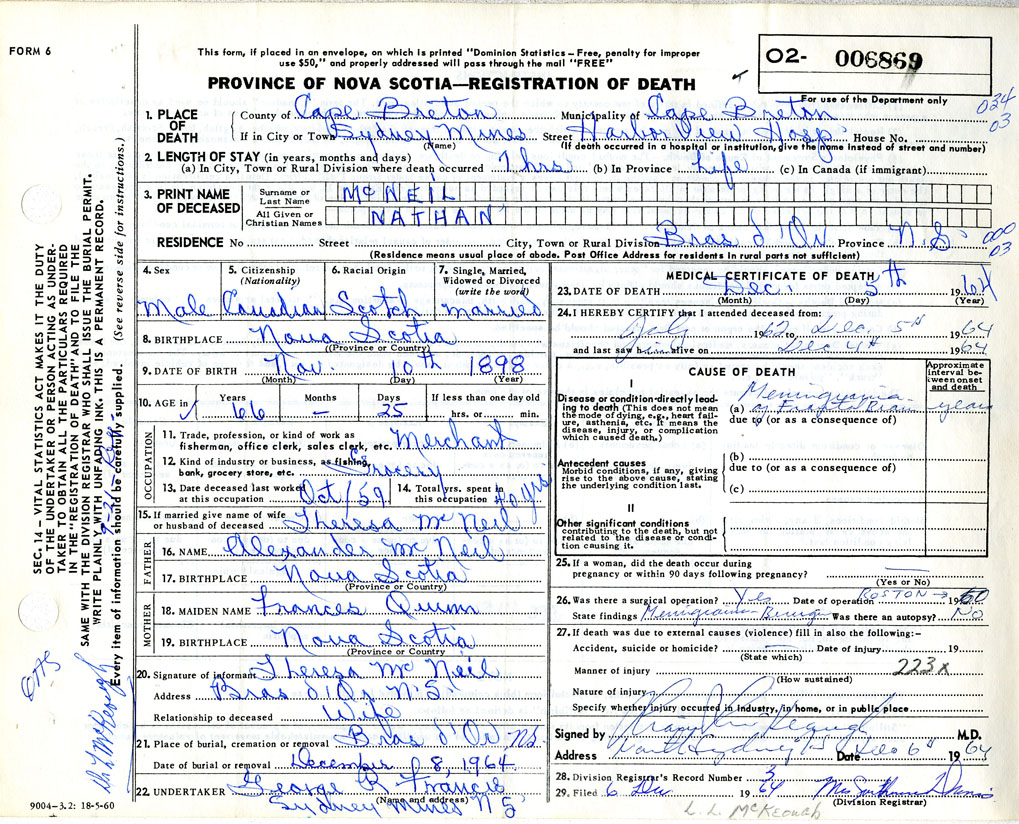 FORM 6
This form, if placed in an envelope, on which is printed "Dominion Statistics – Free, penalty for improper
use $50," and properly addressed will pass through the mail "FREE"
PROVINCE OF NOVA SCOTIA—REGISTRATION OF DEATH
O2- 006869
For use of the Department only
034
03
1. PLACE OF DEATH
County of Cape Breton Municipality of Cape Breton
If in City or Town Sydney Mines Street Harbor View Hosp. House No.
(Name) (If death occurred in a hospital or institution, give the name instead of street and number)
2. LENGTH OF STAY (in years, months and days)
(a) In City, Town or Rural Division where death occurred 7 hrs (b) In Province Life (c) In Canada (if immigrant)
3. PRINT NAME OF DECEASED
Surname or Last Name McNEIL
All Given or Christian Names NATHAN
RESIDENCE No Street City, Town or Rural Division Bras d'Or Province N.S.
000
03
(Residence means usual place of abode. Post Office Address for residents in rural parts not sufficient)
4. Sex Male
5. Citizenship (Nationality) Canadian
6. Racial Origin Scotch
7. Single, Married, Widowed or Divorced (write the word) married
8. BIRTHPLACE Nova Scotia
(Province or Country)
9. DATE OF BIRTH Nov. 10th 1898
(Month) (Day) (Year)
10. AGE in Years Months Days If less than one day old
66 — 25 hrs. or min.
OCCUPATION
11. Trade, profession, or kind of work as
fisherman, office clerk, sales clerk, etc. Merchant
12. Kind of industry or business, as fishing,
bank, grocery store, etc. Grocery
13. Date deceased last worked at this occupation Oct/59
14. Total yrs. spent in this occupation 40 yrs
15. If married give name of wife
or husband of deceased Theresa McNeil
FATHER
16. NAME Alexander McNeil
17. BIRTHPLACE Nova Scotia
(Province or Country)
MOTHER
18. MAIDEN NAME Frances Quinn
19. BIRTHPLACE Nova Scotia
(Province or Country)
20. Signature of informant Theresa McNeil
Address Bras d'Or N.S.
Relationship to deceased Wife
21. Place of burial, cremation or removal Bras d'Or N.S.
Date of burial or removal December 8, 1964
22. UNDERTAKER George R. Francis
(Name and address)
Sydney Mines N S
MEDICAL CERTIFICATE OF DEATH
23. DATE OF DEATH Dec. 5th 1964
(Month) (Day) (Year)
24. I HEREBY CERTIFY that I attended deceased from:
July 1962 to Dec. 5th 1964
and last saw him alive on Dec 4th 1964
CAUSE OF DEATH
Approximate interval between onset and death
I
Disease or condition directly leading to death (This does not mean the mode of dying, e.g., heart failure, asthenia, etc. It means the disease, injury, or complication which caused death.)
(a) Meningioma
of Frontal Brain years
due to (or as a consequence of)
Antecedent causes
Morbid conditions, if any, giving rise to the above cause, stating the underlying condition last.
(b)
due to (or as a consequence of)
(c)
II
Other significant conditions
contributing to the death, but not related to the disease or condition causing it.
25. If a woman, did the death occur during
pregnancy or within 90 days following pregnancy? —
(Yes or No)
26. Was there a surgical operation? Yes Date of operation BOSTON → 1960
State findings Meningioma - Benign Was there an autopsy? No
27. If death was due to external causes (violence) fill in also the following:-
Accident, suicide or homicide? Date of injury 19
(State which)
Manner of injury 223x
(How sustained)
Nature of injury
Specify whether injury occurred in industry, in home, or in public place
Signed by M.D.
Address North Sydney NS Date Dec 6th 1964
28. Division Registrar's Record Number 3
29. Filed 6 Dec 1964
(Division Registrar)
L. L. McKeough
SEC. 14 – VITAL STATISTICS ACT MAKES IT THE DUTY
OF THE UNDERTAKER OR PERSON ACTING AS UNDER-
TAKER TO OBTAIN ALL THE PARTICULARS REQUIRED
IN THE "REGISTRATION OF DEATH" AND TO FILE THE
SAME WITH THE DIVISION REGISTRAR WHO SHALL ISSUE THE BURIAL PERMIT.
WRITE PLAINLY WITH UNFADING INK. THIS IS A PERMANENT RECORD.
Every item of information should be carefully supplied. (See reverse side for instructions.)
Dr L McKeough
9004–3.2: 18-5-60